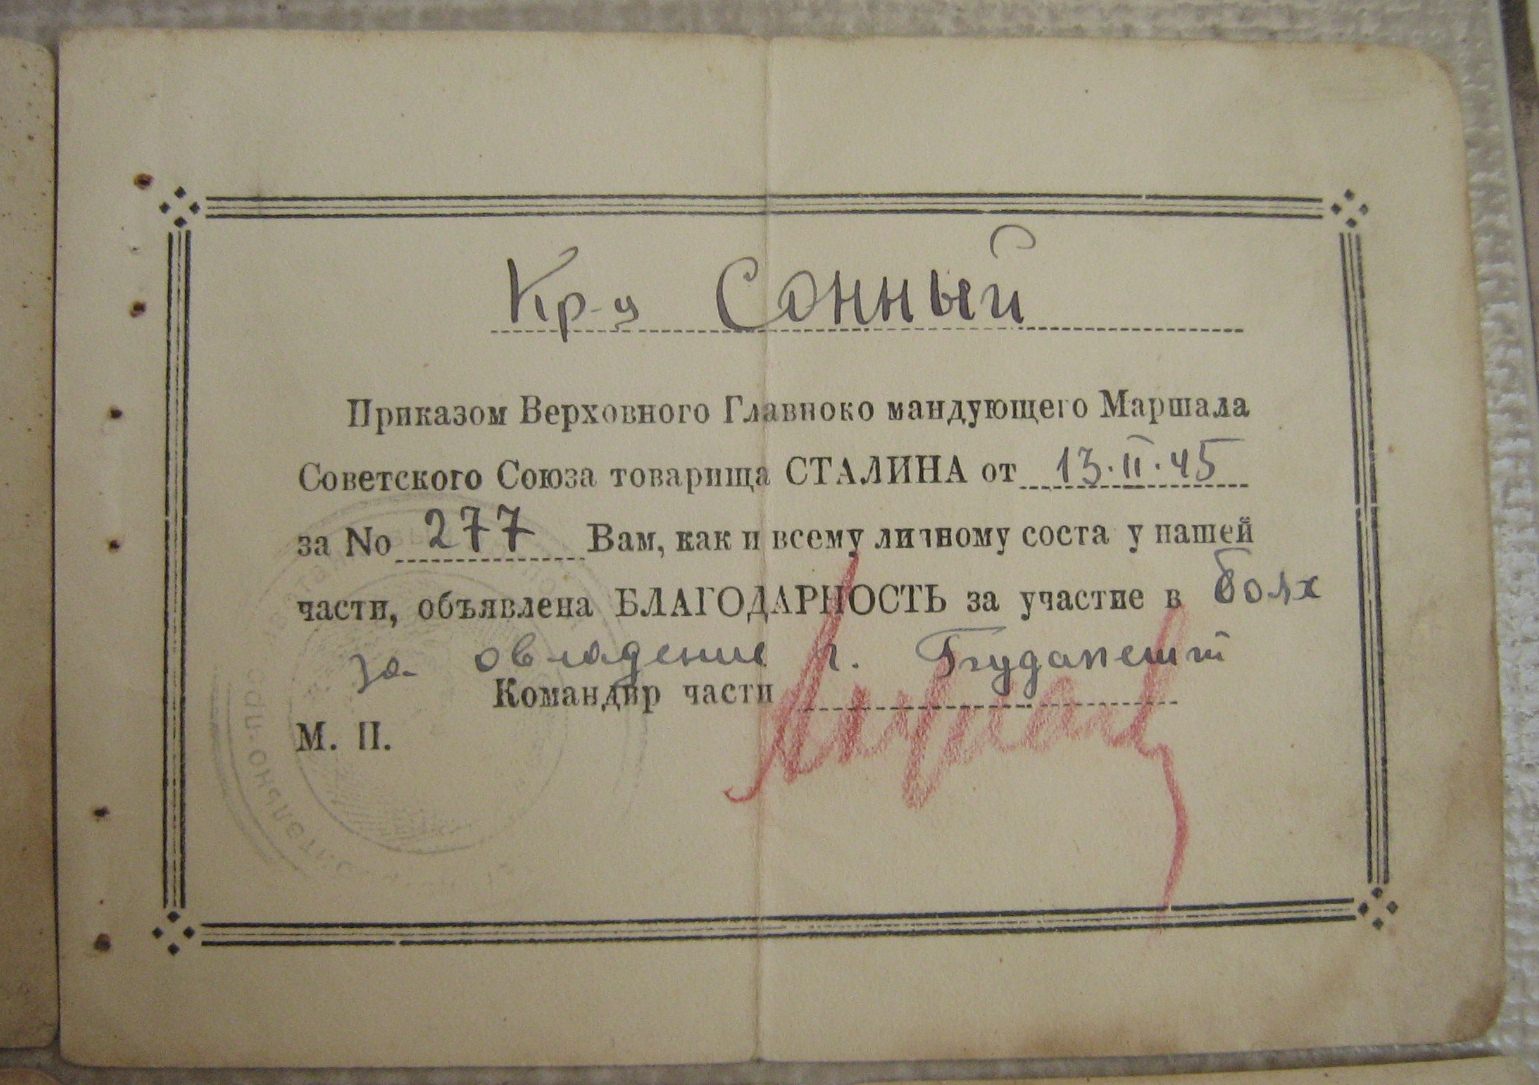 Кр-ц Сонный
Приказом Верховного Главноко мандующего Маршала
Советского Союза товарища СТАЛИНА от 13.II.45
за No 277 Вам, как и всему личному соста у нашей
части, объявлена БЛАГОДАРНОСТЬ за участие в боях
за овладение г. Будапешт
Командир части
М. П.